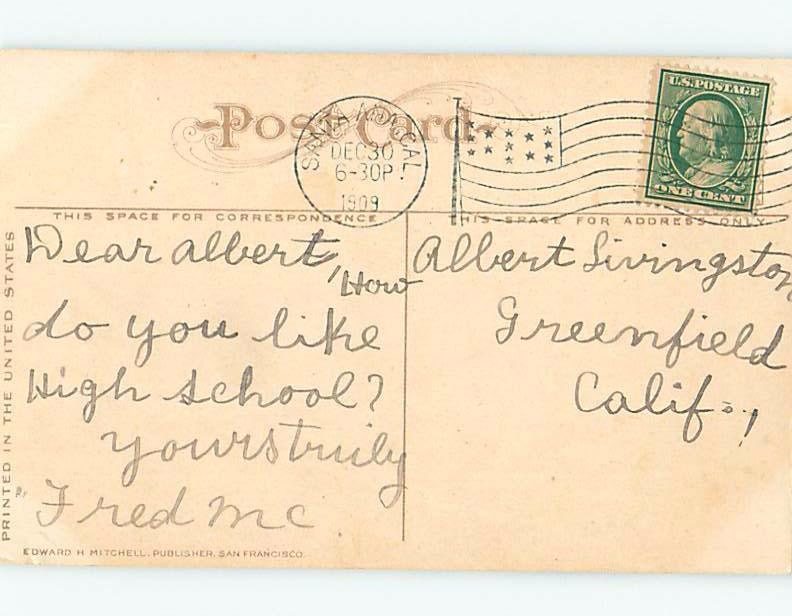 Post Card
SANTA ANA, CAL.
DEC 30
6-30P.
1909
U.S. POSTAGE
ONE CENT
THIS SPACE FOR CORRESPONDENCE
THIS SPACE FOR ADDRESS ONLY
Dear albert, How
do you like
High school?
yours truily
Fred Mc
Albert Livingston
Greenfield
Calif.,
PRINTED IN THE UNITED STATES
EDWARD H MITCHELL, PUBLISHER, SAN FRANCISCO.